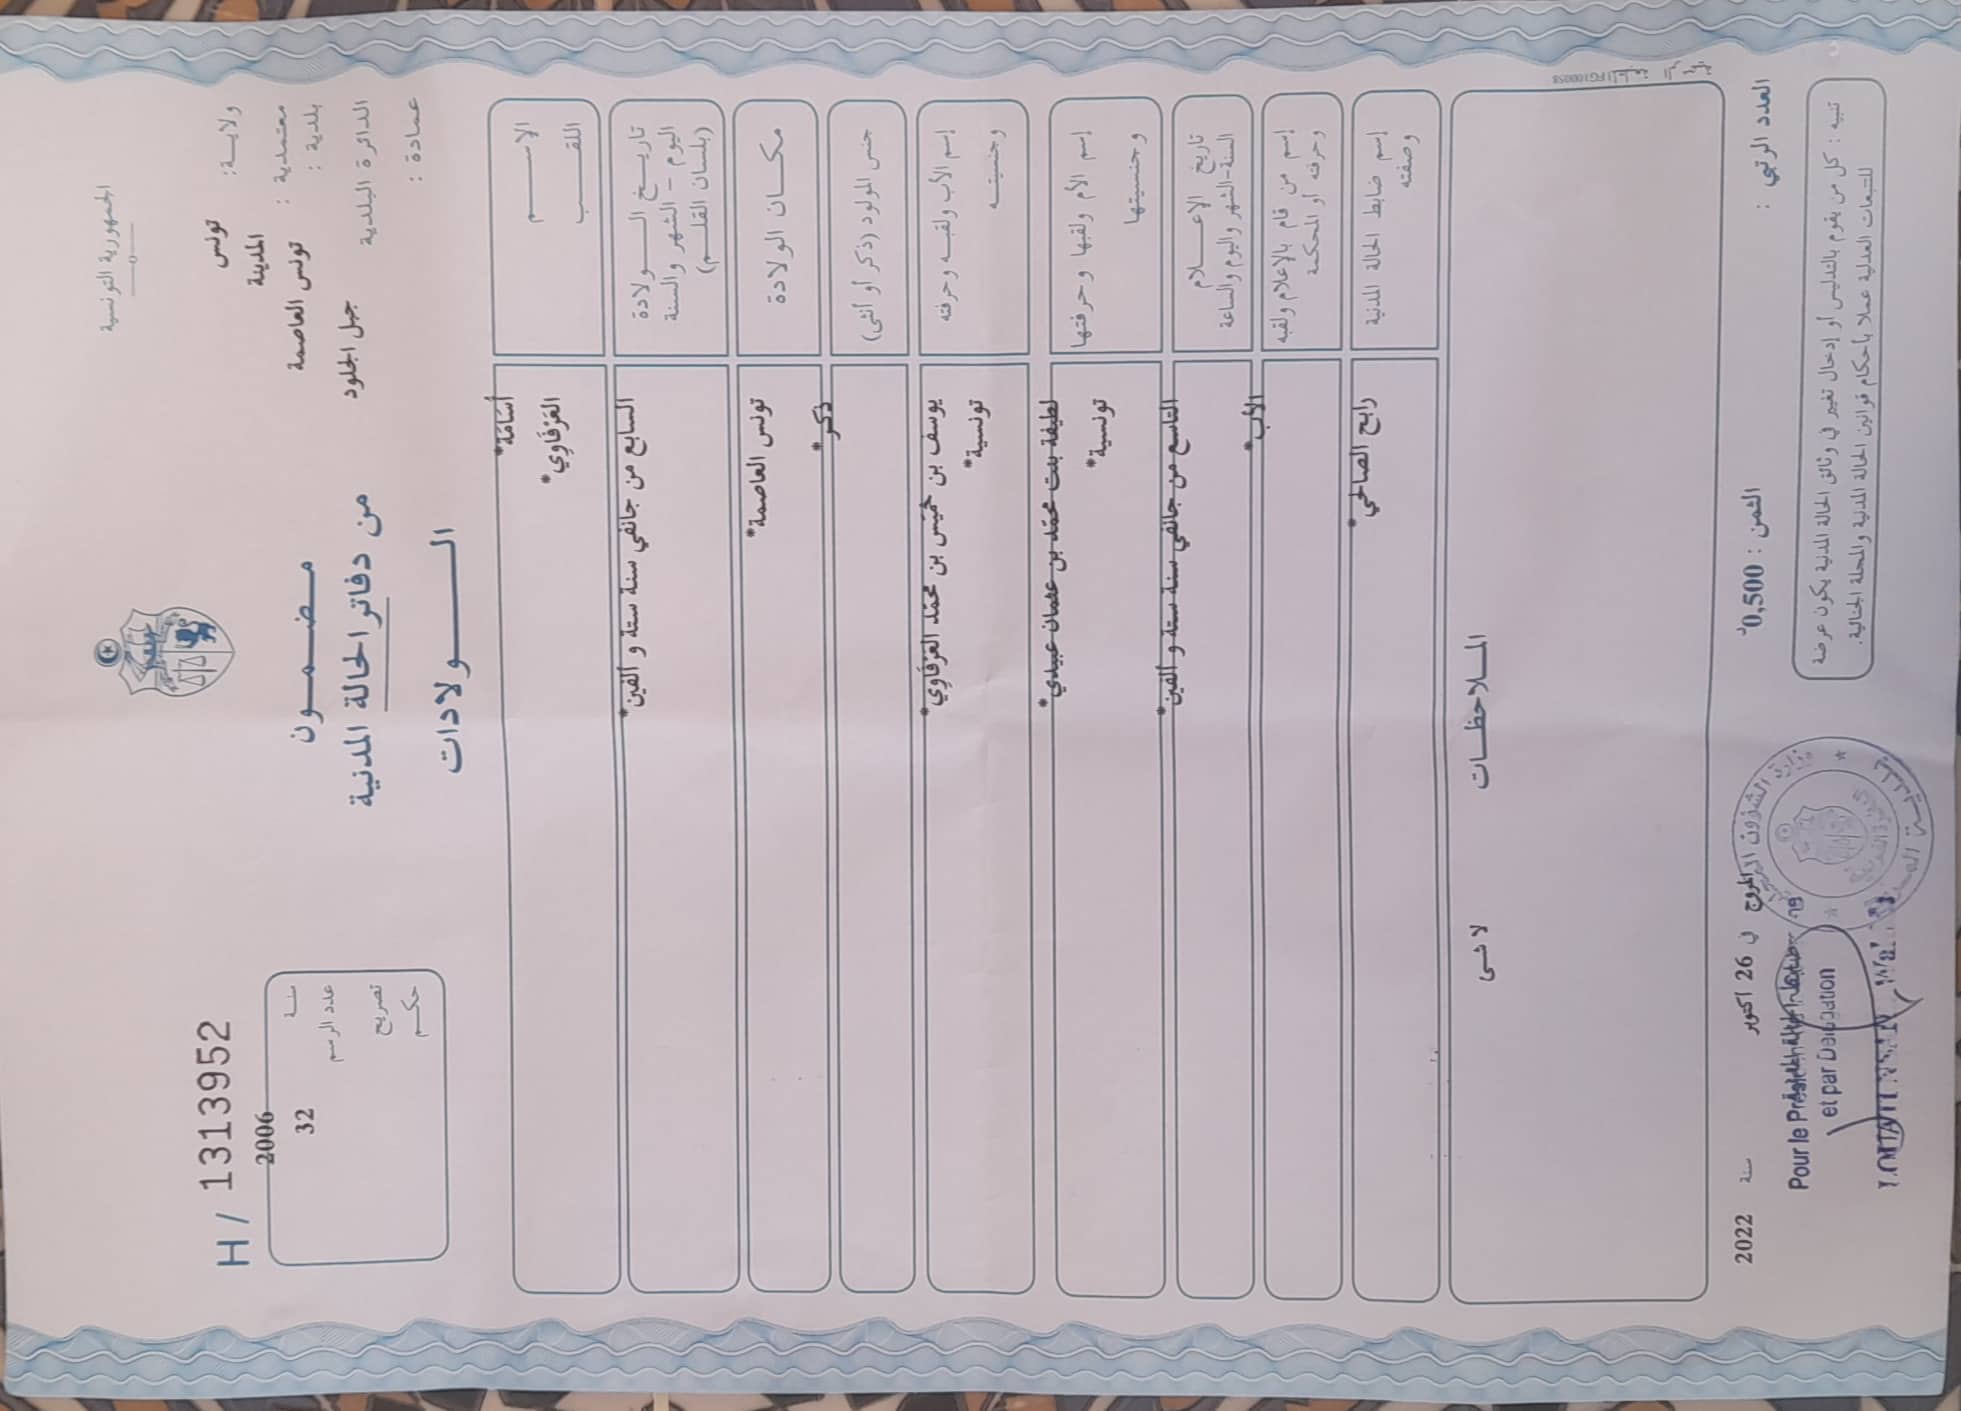 الجمهورية التونسية
ولاية: تونس
معتمدية : المدينة
بلدية : تونس العاصمة
الدائرة البلدية جبل الجلود
عمادة :
مضمون
من دفاتر الحالة المدنية
الولادات
H / 1313952
سنة 2006
عدد الرسم 32
تصريح
حكم
الإسم أسَامَة*
اللقب الغَرْفَاوِي*
تاريخ الولادة
اليوم - الشهر والسنة
(بلسان القلم)
السابع من جانفي سنة ستة و ألفين*
مكان الولادة تونس العاصمة*
جنس المولود (ذكر أو أنثى) ذكر*
إسم الأب ولقبه وحرفته يوسف بن خميّس بن محمّد الغَرْفَاوِي*
وجنسيته تونسية*
إسم الأم ولقبها وحرفتها لطيفة بنت محمّد بن عثمان عبيدي*
وجنسيتها تونسية*
تاريخ الإعلام
السنة-الشهر واليوم والساعة
التاسع من جانفي سنة ستة و ألفين*
إسم من قام بالإعلام ولقبه
وحرفته أو المحكمة
الأب*
إسم ضابط الحالة المدنية
وصفته
رابح الصالحي*
الملاحظات
لا شىء
1FG100058
العدد الرتبي :
الثمن : 0,500د
المروج في 26 أكتوبر سنة 2022
تنبيه : كل من يقوم بالتدليس أو إدخال تغيير في وثائق الحالة المدنية يكون عرضة
للتتبعات العدلية عملا بأحكام قوانين الحالة المدنية والمجلة الجنائية.
وزارة الشؤون
Pour le Président
et par Délégation